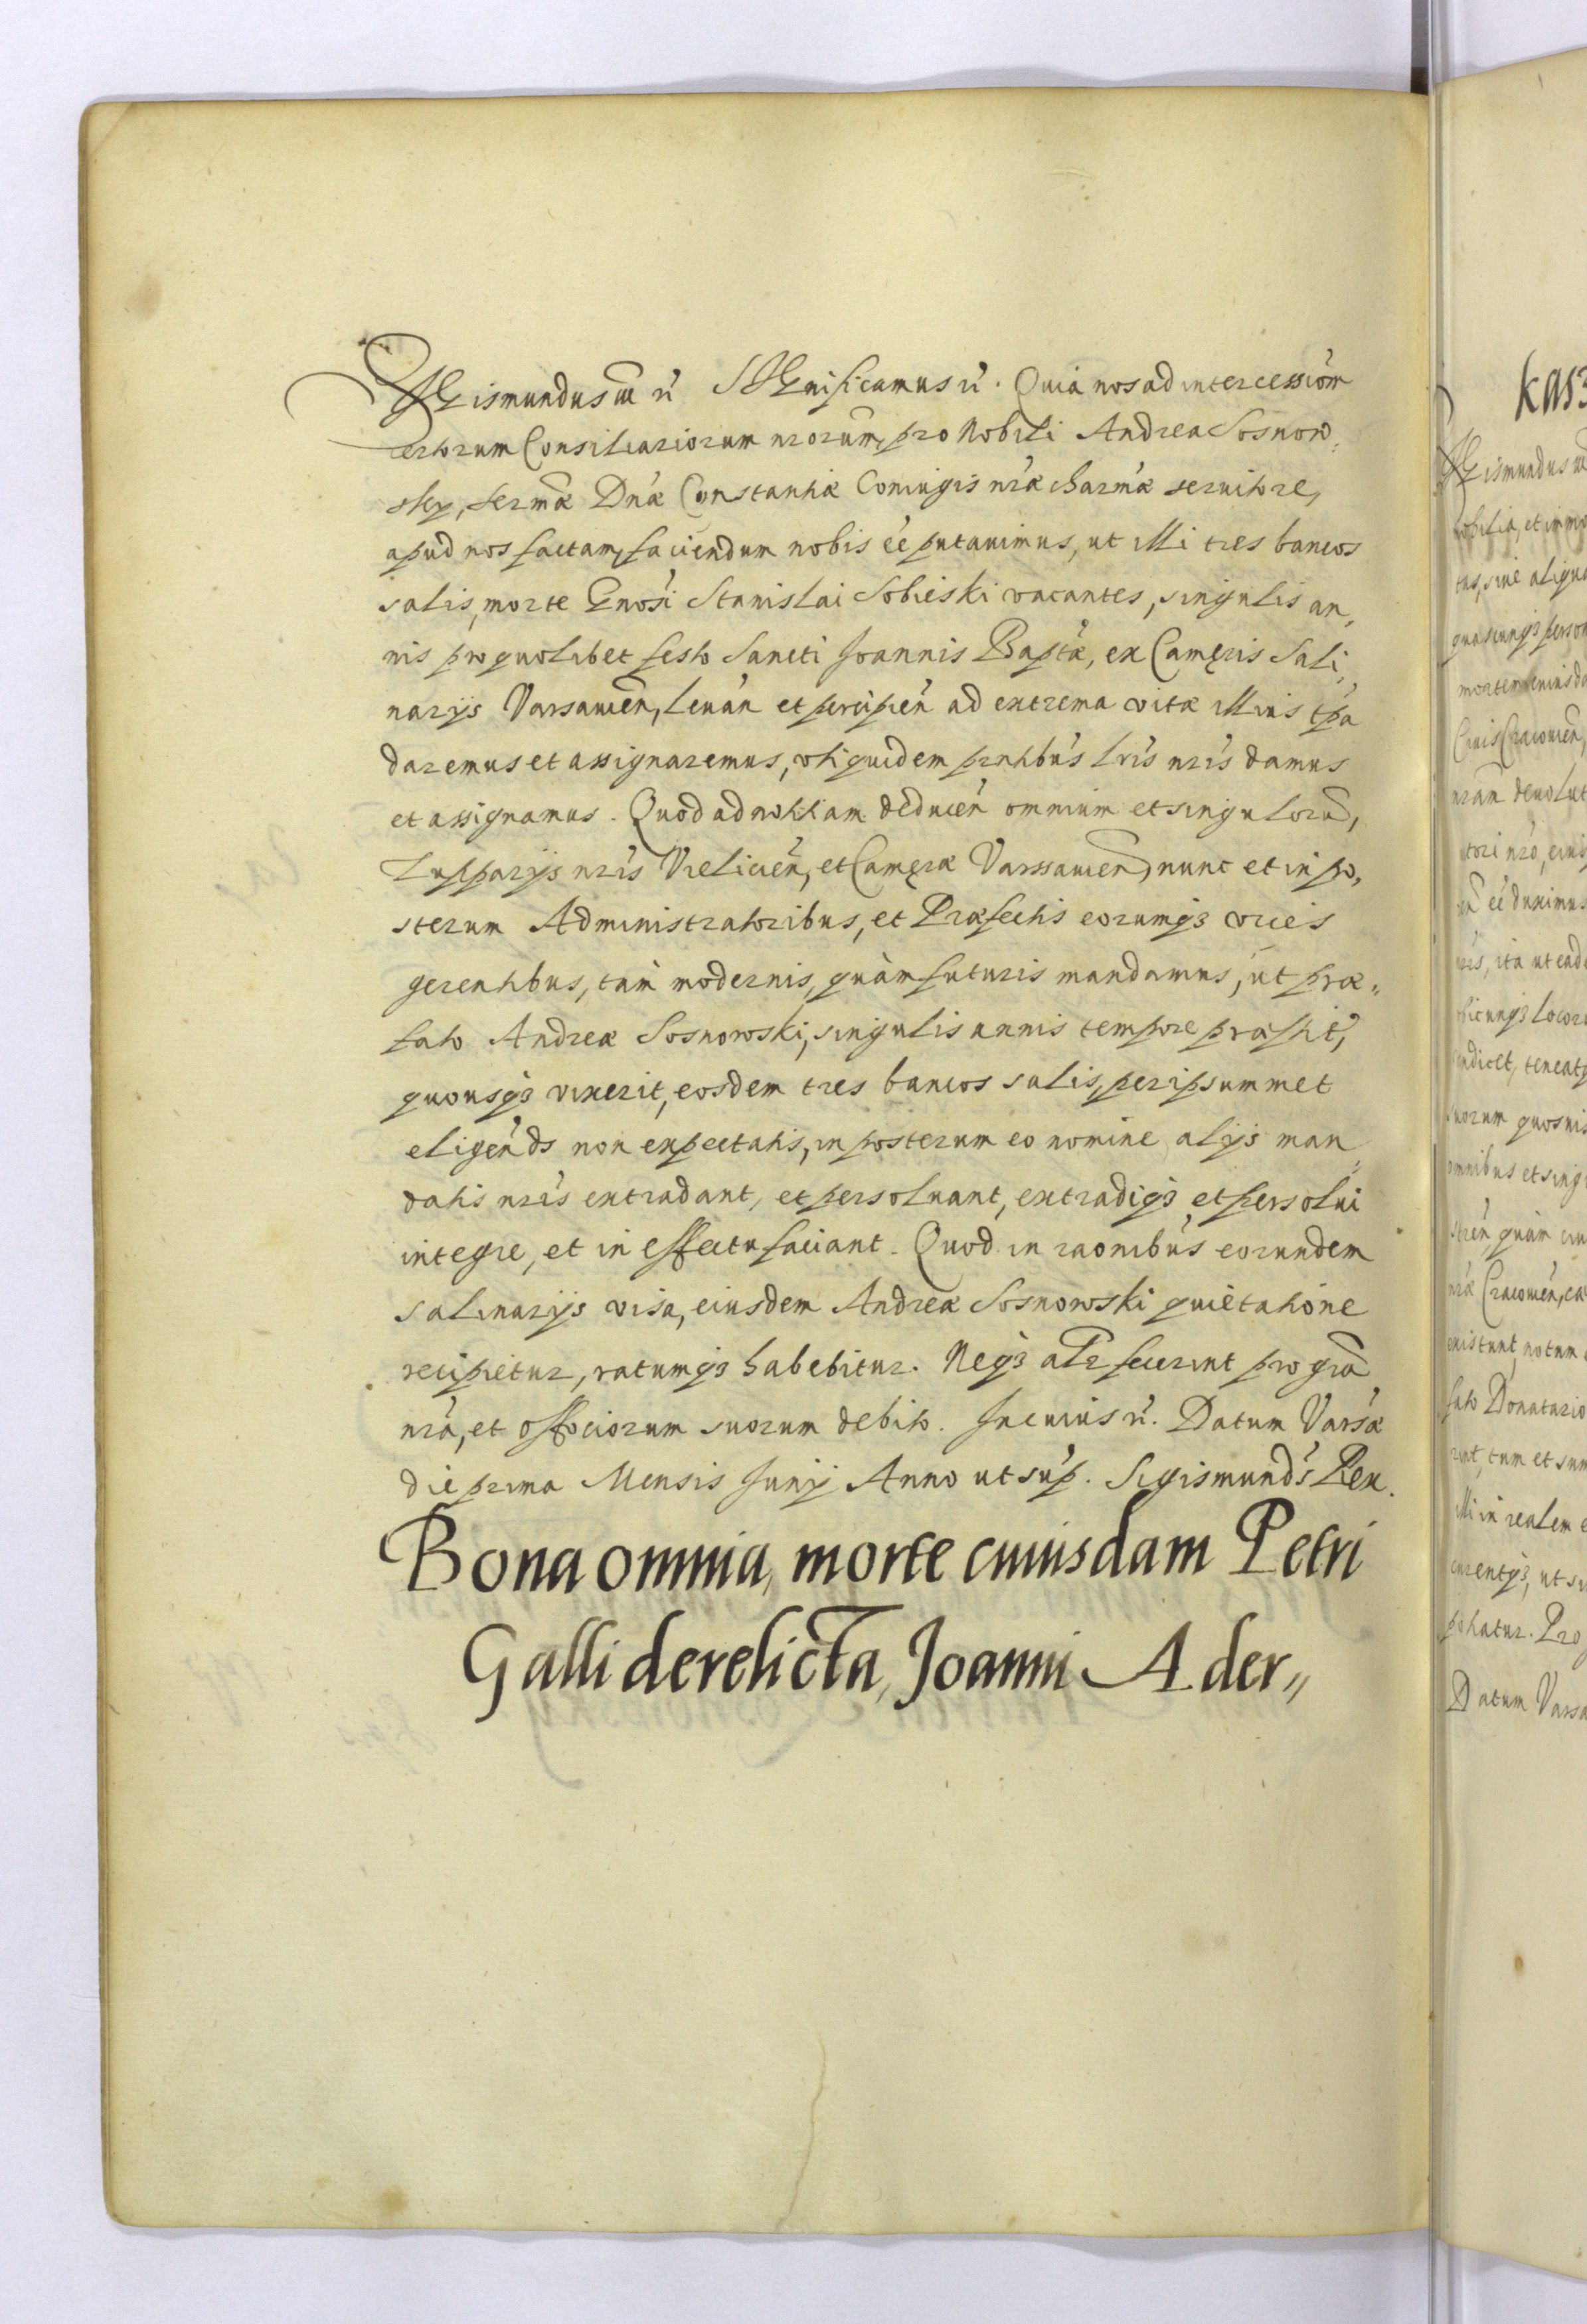 Sigismundus III etc Significamus etc. Quia nos ad intercessiom
certorum Consiliariorum nrorum, pro Nobili Andrea Sosnow,
sky, sermæ Dnæ Constantiæ Coniugis nræ charmæ seruitore,
apud nos factam, faciendum nobis ee putauimus, ut illi tres bancos
salis, morte Gnosi Stanislai Sobieski vacantes, singulis an,
nis pro quolibet festo Sancti Joannis Baptæ, ex Cameris Sali,
narijs Varsauien, leuan et percipien ad extrema vitæ illius tpa
daremus et assignaremus, vti quidem pntibus lris nris damus
et assignamus. Quod ad notitiam deducen omnium et singulorum,
Zupparijs nris Vieliceñ, et Cameræ Varssauien, nunc et in po,
sterum Administratoribus, et Præfectis eorumq3 vices
gerentibus, tam modernis, quàm futuris mandamus, ut præ,,
fato Andreæ Sosnowski, singulis annis tempore præfixo,
quousq3 vixerit, eosdem tres bancos salis, per ipsummet
eligendos non expectatis, in posterum eo nomine alijs man,,
datis nris extradant, et persoluant, extradiq3 et persolui
integre, et in effectu faciant. Quod in raonibus eorundem
salinarijs visa, eiusdem Andreæ Sosnowski quietatione
recipietur, ratumq3 habebitur. Neq3 alr fecerint pro gra
nra, et officiorum suorum debito. In cuius etc. Datum Varsæ
die prima Mensis Junij Anno ut sup. Sigismunds Rex.
Bona omnia, morte cuiusdam Petri
Galli derelicta, Joanni Ader,,